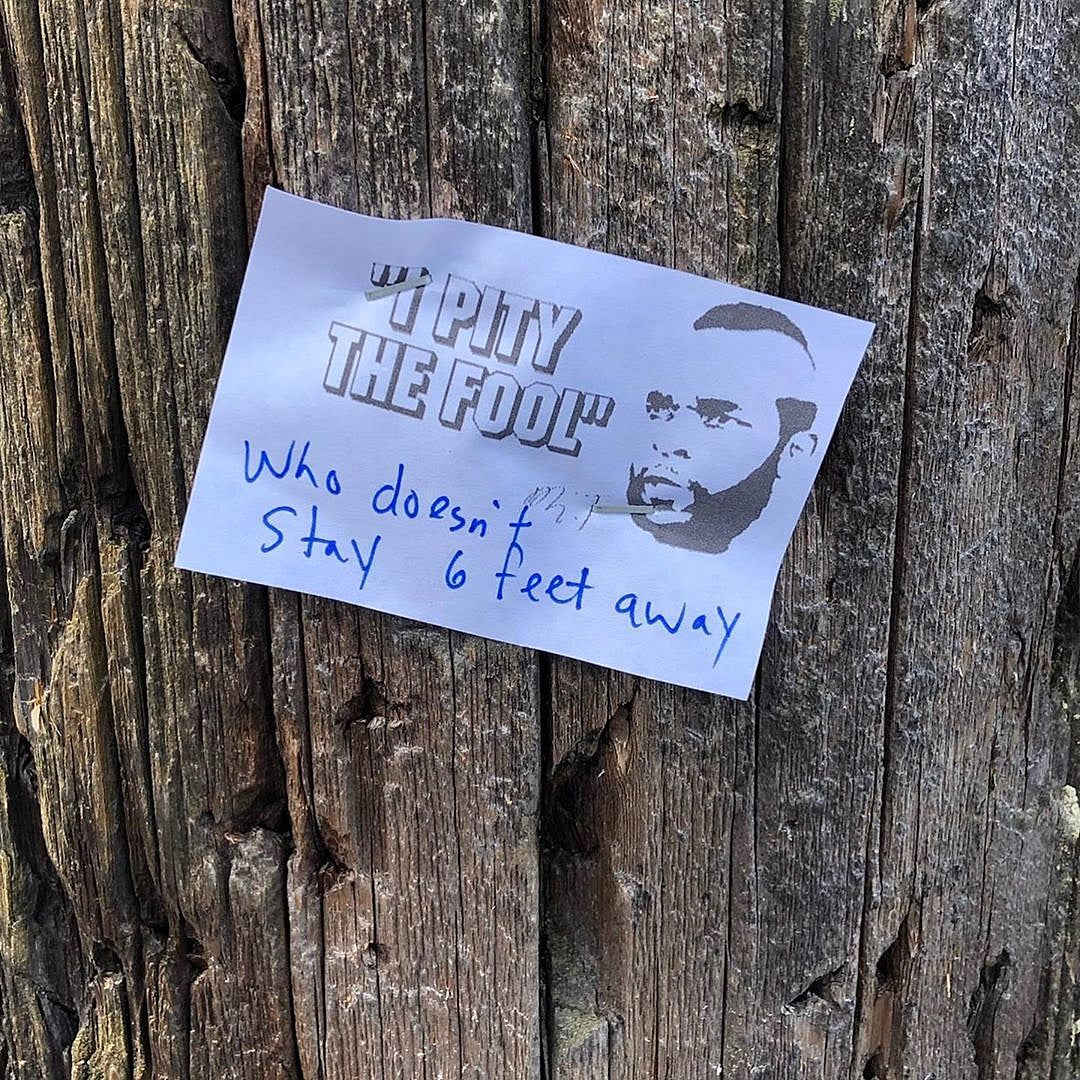 "I PITY
THE FOOL"
Who doesn't
Stay 6 feet away